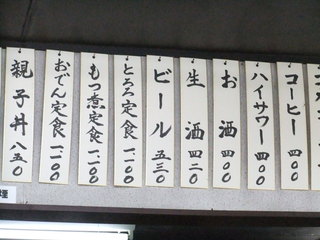 コーヒー 四〇〇
ハイサワー 四〇〇
お酒 四〇〇
生酒 四二〇
ビール 五三〇
とろろ定食 一、一〇〇
もつ煮定食 一、一〇〇
おでん定食 一、一〇〇
親子丼 八五〇